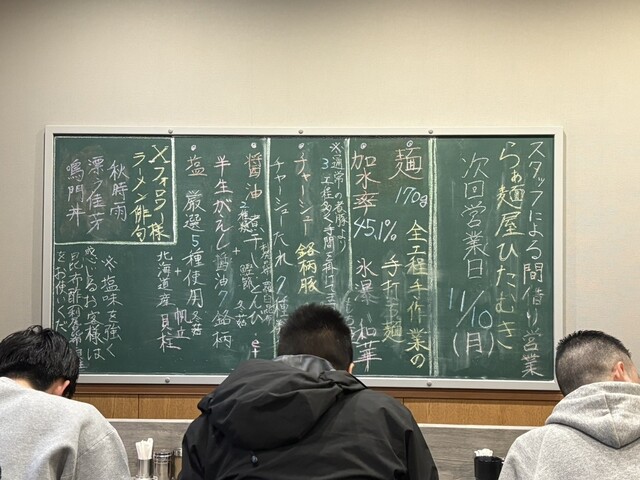 スタッフによる間借り営業
らぁ麺屋ひたむき
次回営業日 11/10(月)
麺 170g 全工程手作業の
手打ち麺
加水率 45.1% 氷瀑 和華
※通常の煮豚より
3工程多く時間を掛けて
チャーシュー 銘柄豚
チャーシューだれ 7種
醤油 煮干し とんび
2種類 鰹節 冬菇
半生がえし 醤油7銘柄
塩 厳選5種使用 冬菇
+ 帆立
北海道産貝柱
Xフォロワー様
ラーメン俳句
秋時雨
漂う佳芽
鳴門丼
※塩味を強く
感じるお客様は
昆布酢
をお使いくだ